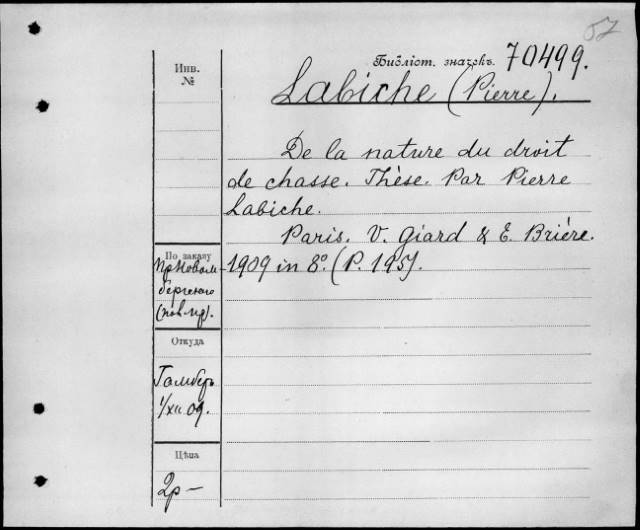 57
Инв.
№
Библіот. значекъ 70499.
Labiche (Pierre).
De la nature du droit
de chasse. Thèse. Par Pierre
Labiche.
Paris. V. Giard & E. Brière.
1909 in 8º. (P. 195).
По заказу
Откуда
1/XII 09.
Цѣна
2р—